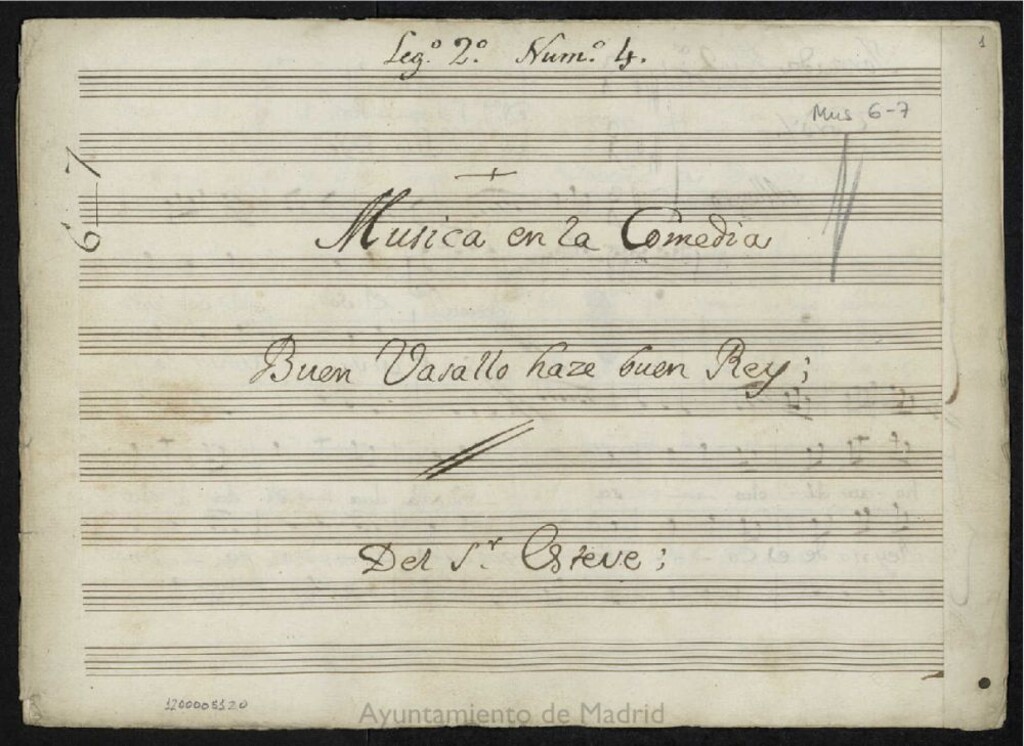 Leg.º 2.º Num.º 4.
1
Mus 6-7
6-7
Musica en la Comedia
Buen Vasallo haze buen Rey;
Del S.r Esteve;
1200005120
Ayuntamiento de Madrid